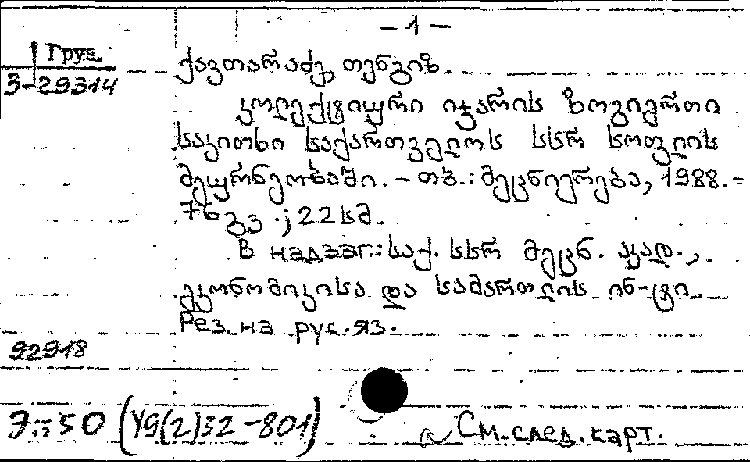 – 1 –
Груз.
3-29314
ქავთარაძე, თენგიზ.
კოლექტიური იჯარის ზოგიერთი
საკითხი საქართველოს სსრ სოფლის
მეურნეობაში. – თბ.: მეცნიერება, 1988. –
76 გვ.; 22 სმ.
В надзаг.: საქ. სსრ მეცნ. აკად.,
ეკონომიკისა და სამართლის ინ-ტი
Рез. на рус. яз.
92918
Э=50 (У9(2)32-801)
См. след. карт.